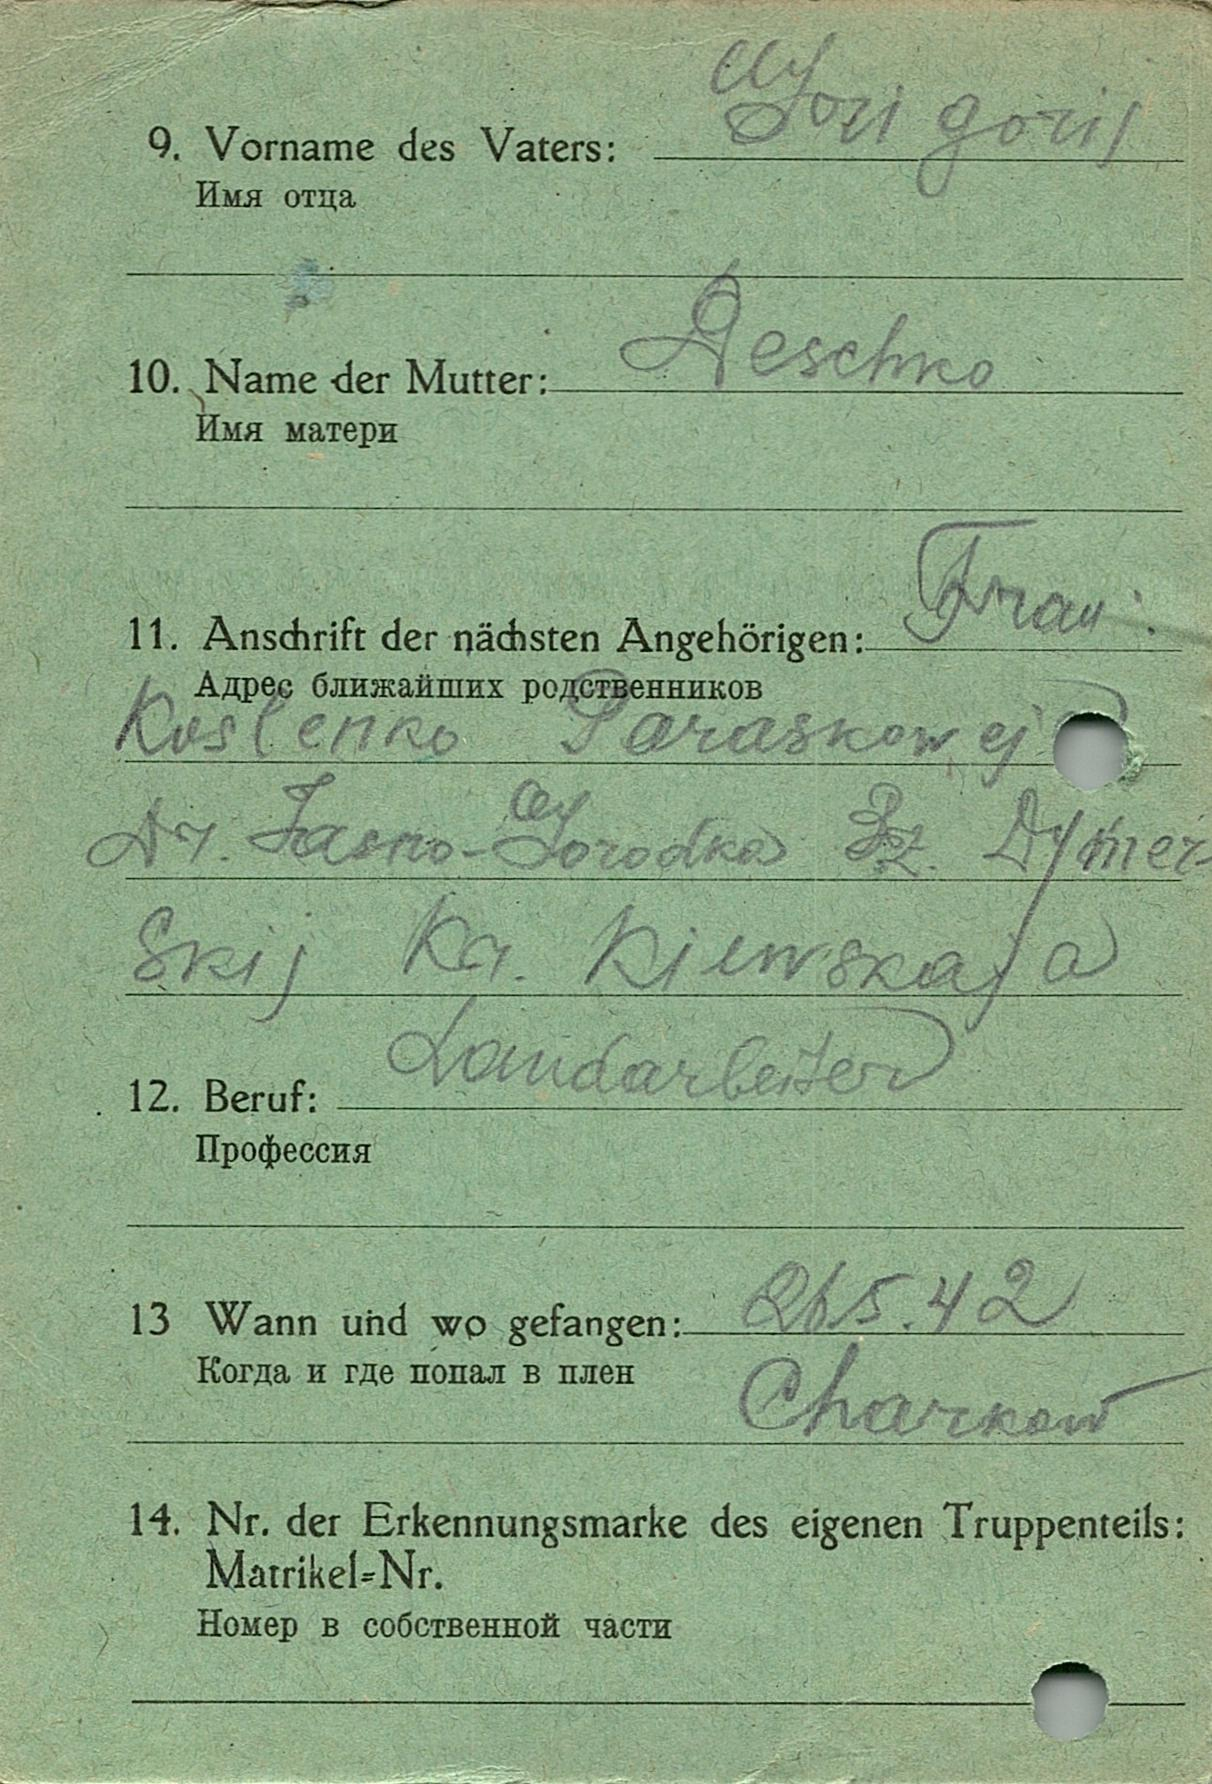 Grigorij
9. Vorname des Vaters:
Имя отца
10. Name der Mutter: Aeschko
Имя матери
Frau:
11. Anschrift der nächsten Angehörigen:
Адрес ближайших родственников
Koslenko Paraskowej
Dr. Jasno-Gorodka Bz. Dymer-
skij Kr. Kiewskaja
12. Beruf: Landarbeiter
Профессия
13 Wann und wo gefangen: 26.5.42
Когда и где попал в плен
Charkow
14. Nr. der Erkennungsmarke des eigenen Truppenteils:
Matrikel=Nr.
Номер в собственной части